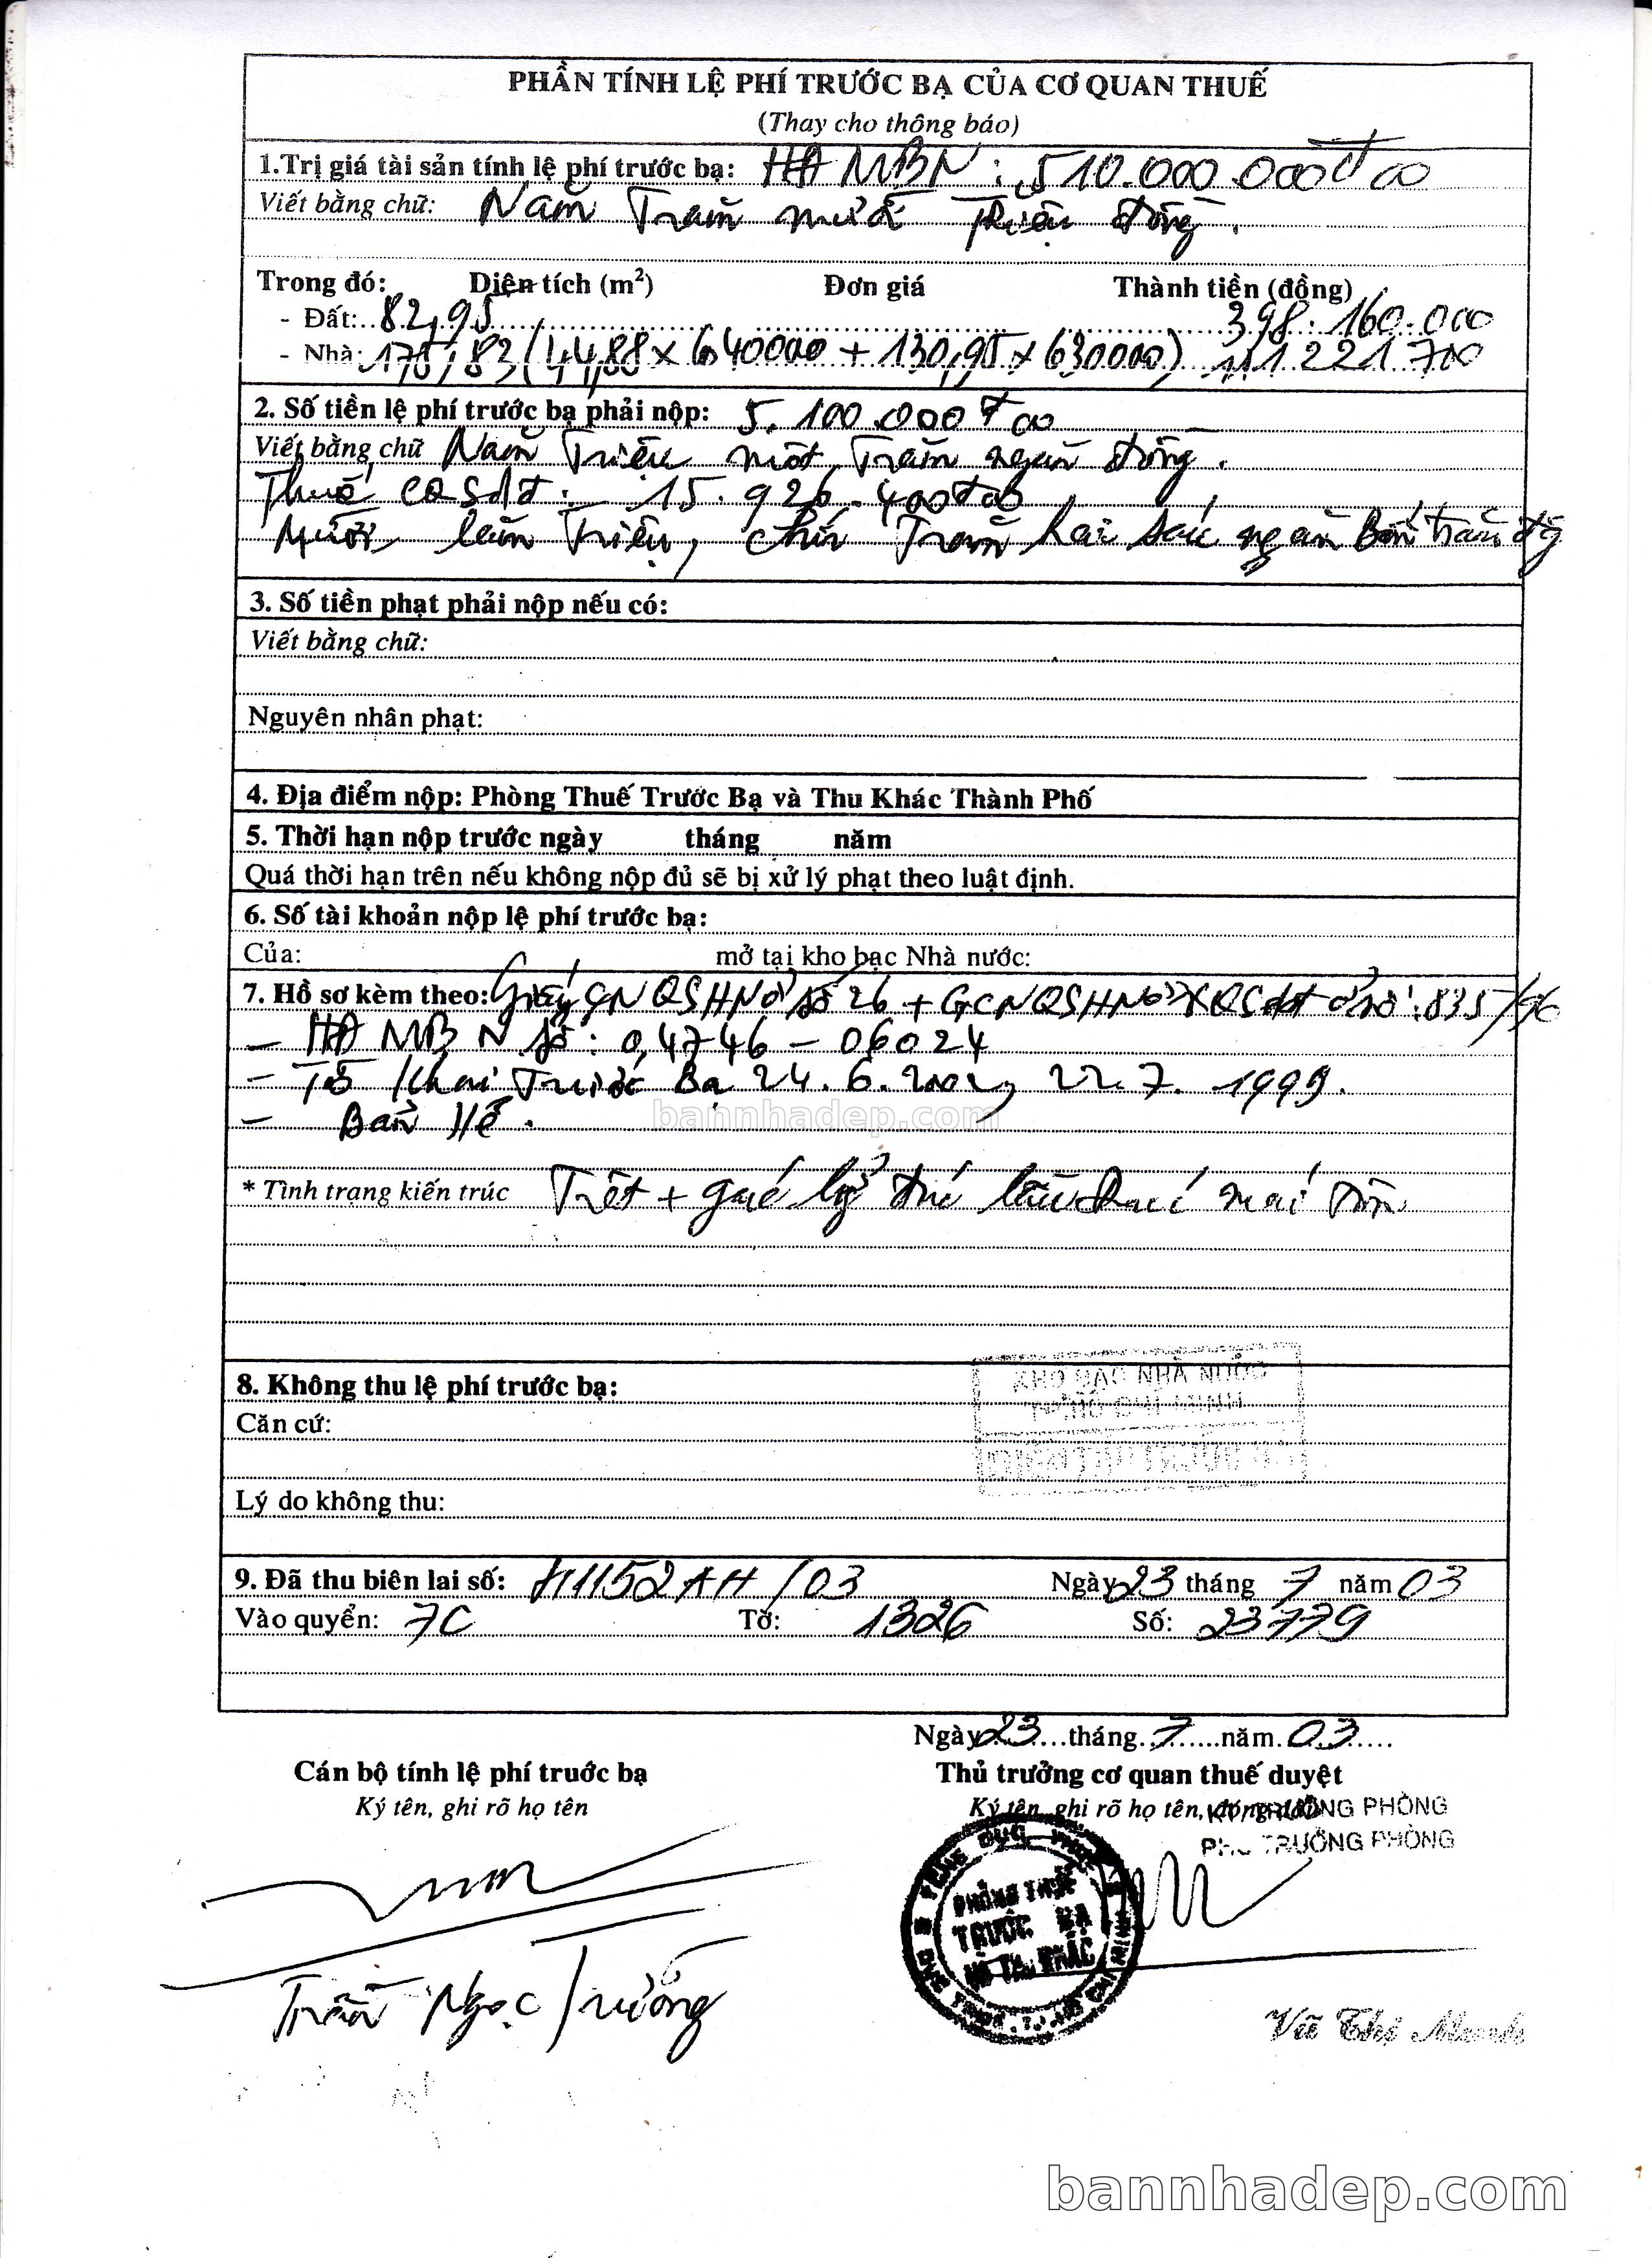 PHẦN TÍNH LỆ PHÍ TRƯỚC BẠ CỦA CƠ QUAN THUẾ
(Thay cho thông báo)
1.Trị giá tài sản tính lệ phí trước bạ: HĐ MBN : 510.000.000đ 00
Viết bằng chữ: Năm Trăm mười Triệu đồng.
Trong đó: Diện tích (m²) Đơn giá Thành tiền (đồng)
- Đất: 82,95 398.160.000
- Nhà: 175,83 (44,88 x 640000 + 130,95 x 630000) 111.221.700
2. Số tiền lệ phí trước bạ phải nộp: 5.100.000đ 00
Viết bằng chữ Năm Triệu một Trăm ngàn đồng.
Thuế CQSdđ: 15.926.400đ00
Mười lăm Triệu, chín Trăm hai sáu ngàn Bốn trăm đg
3. Số tiền phạt phải nộp nếu có:
Viết bằng chữ:
Nguyên nhân phạt:
4. Địa điểm nộp: Phòng Thuế Trước Bạ và Thu Khác Thành Phố
5. Thời hạn nộp trước ngày tháng năm
Quá thời hạn trên nếu không nộp đủ sẽ bị xử lý phạt theo luật định.
6. Số tài khoản nộp lệ phí trước bạ:
Của: mở tại kho bạc Nhà nước:
7. Hồ sơ kèm theo: Giấy CNQSHNở số 26 + GCNQSHNở & QSdđ ở số: 835/96
- HĐ MBN số: 04746 - 06024
- Tờ khai Trước Bạ 24.6.2002, 22.7.1999.
- Bản vẽ.
bannhadep.com
* Tình trạng kiến trúc Trệt + mái tôn
8. Không thu lệ phí trước bạ:
KHO BẠC NHÀ NƯỚC
CHÍ MINH
Căn cứ:
Lý do không thu:
9. Đã thu biên lai số: 71152AH/03 Ngày 23 tháng 7 năm 03
Vào quyển: 7C Tờ: 1326 Số: 23779
Ngày 23 tháng 7 năm 03
Cán bộ tính lệ phí truớc bạ Thủ trưởng cơ quan thuế duyệt
Ký tên, ghi rõ họ tên Ký tên, ghi rõ họ tên, đóng dấu
KT/TRƯỞNG PHÒNG
PHÓ TRƯỞNG PHÒNG
PHÒNG THUẾ
TRƯỚC BẠ
VÀ THU KHÁC
Trần Ngọc Trường
Vũ Thị
bannhadep.com